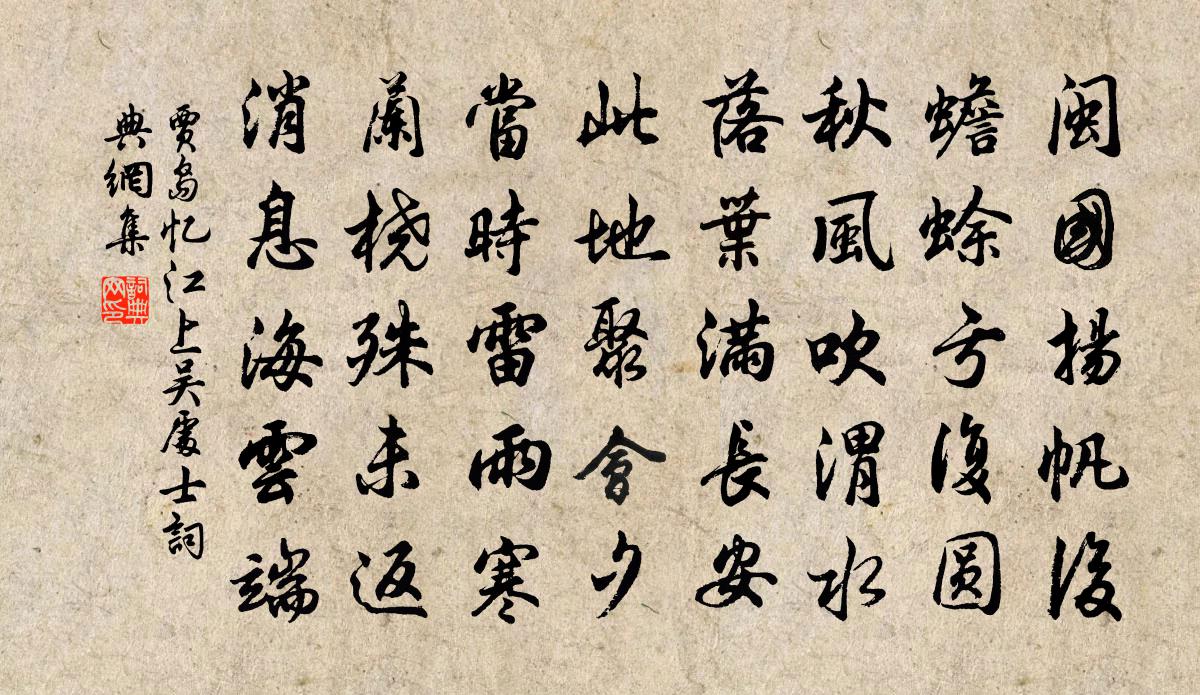 閩國揚帆後
蟾蜍亏復圆
秋風吹渭水
落葉滿長安
此地聚會夕
當時雷雨寒
蘭橈殊未返
消息海雲端
賈島忆江上吴處士詞
典網集
詞典
网印